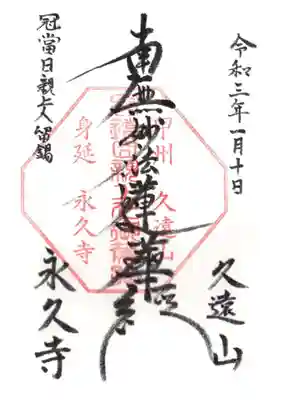 令和三年一月十日
久遠山
南無妙法蓮華経
冠當日親上人留錫
永久寺
甲州 久遠山
身延 永久寺